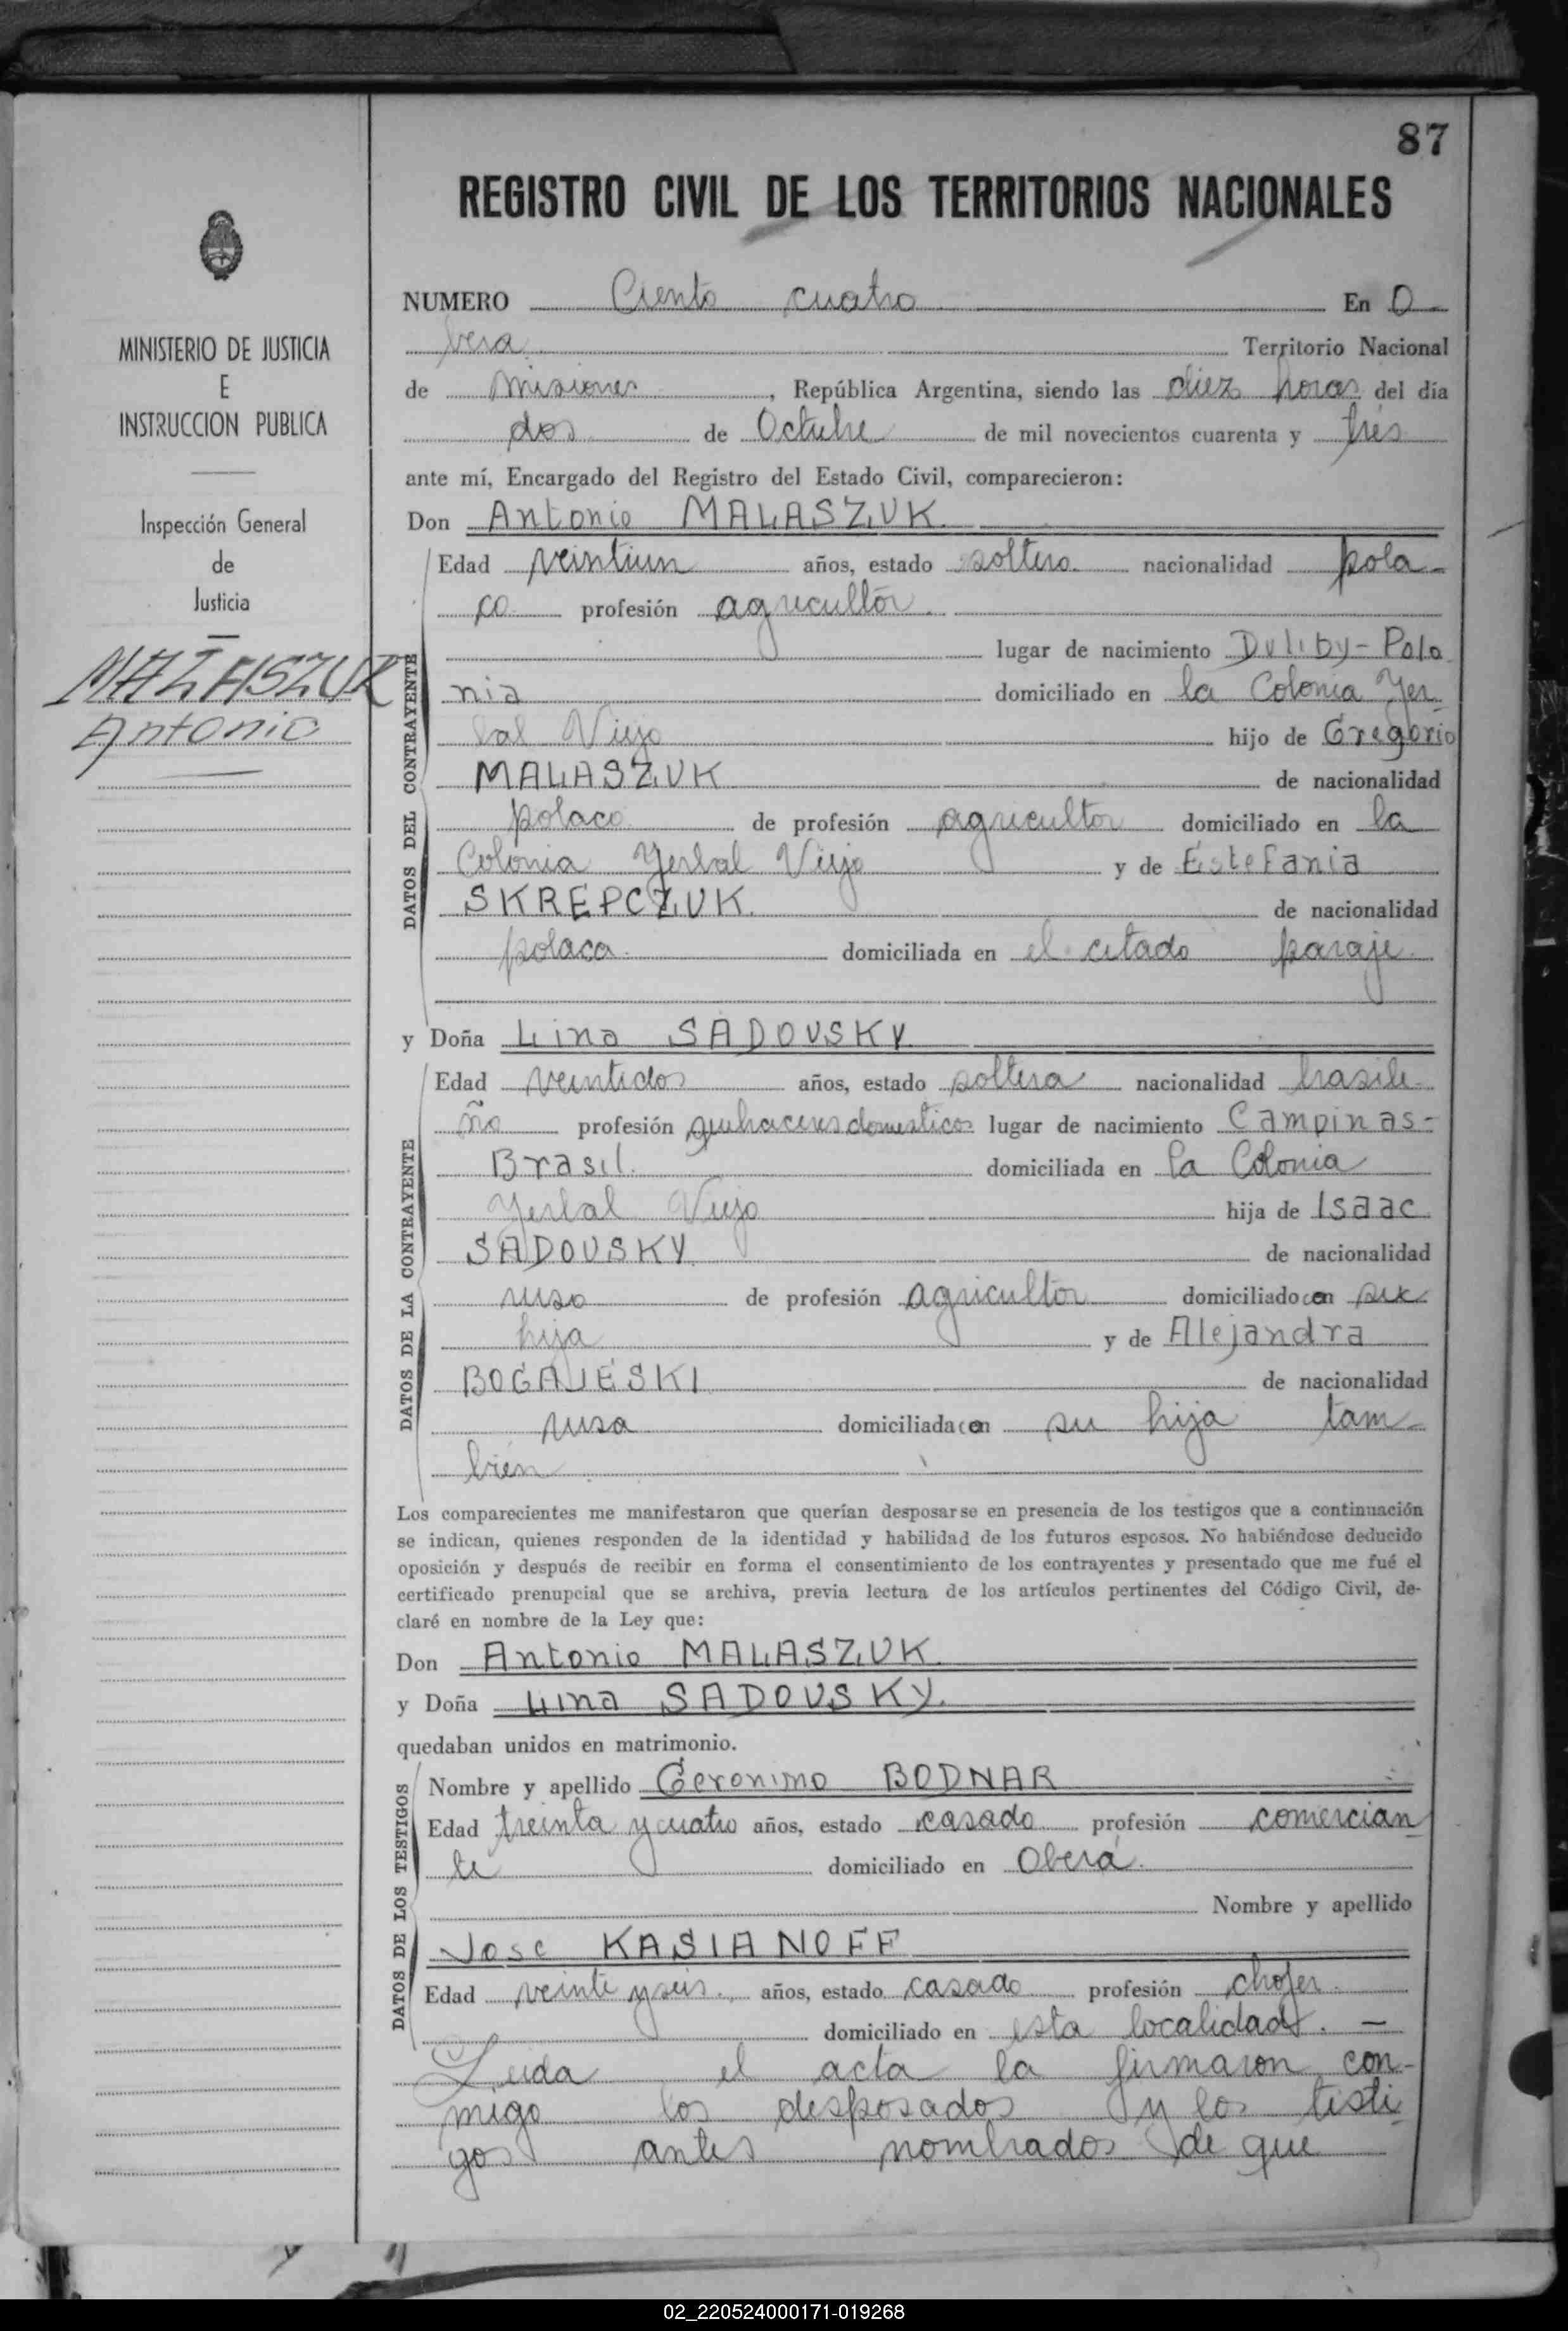 87
REGISTRO CIVIL DE LOS TERRITORIOS NACIONALES
MINISTERIO DE JUSTICIA
E
INSTRUCCION PUBLICA
Inspección General
de
Justicia
MALASZUK
Antonio
NUMERO Ciento cuatro En O-
bera Territorio Nacional
de Misiones, República Argentina, siendo las diez horas del día
dos de Octubre de mil novecientos cuarenta y trés
ante mí, Encargado del Registro del Estado Civil, comparecieron:
Don Antonio MALASZUK
DATOS DEL CONTRAYENTE
Edad veintiun años, estado soltero. nacionalidad pola-
co profesión agricultor.
lugar de nacimiento Duliby-Polo
nia domiciliado en la Colonia Yer
bal Viejo hijo de Gregorio
MALASZUK de nacionalidad
polaco de profesión agricultor domiciliado en la
Colonia Yerbal Viejo y de Estefania
SKREPCZUK. de nacionalidad
polaca domiciliada en el citado paraje.
y Doña Lina SADOVSKY
DATOS DE LA CONTRAYENTE
Edad veintidos años, estado soltera nacionalidad brasile-
ño profesión quehaceres domesticos lugar de nacimiento Campinas-
Brasil. domiciliada en la Colonia
Yerbal Viejo hija de Isaac
SADOVSKY de nacionalidad
ruso de profesión agricultor domiciliado con su
hija y de Alejandra
BOGAJESKI de nacionalidad
rusa domiciliada con su hija tam-
bién
Los comparecientes me manifestaron que querían desposarse en presencia de los testigos que a continuación
se indican, quienes responden de la identidad y habilidad de los futuros esposos. No habiéndose deducido
oposición y después de recibir en forma el consentimiento de los contrayentes y presentado que me fué el
certificado prenupcial que se archiva, previa lectura de los artículos pertinentes del Código Civil, de-
claré en nombre de la Ley que:
Don Antonio MALASZUK.
y Doña Lina SADOVSKY.
quedaban unidos en matrimonio.
DATOS DE LOS TESTIGOS
Nombre y apellido Geronimo BODNAR
Edad treinta y cuatro años, estado casado profesión comercian
te domiciliado en Oberá.
Nombre y apellido
José KASIANOFF
Edad veinte y seis años, estado casado profesión chofer.
domiciliado en esta localidad. —
Leida el acta la firmaron con-
migo los desposados y los testi
gos antes nombrados de que
02_220524000171-019268